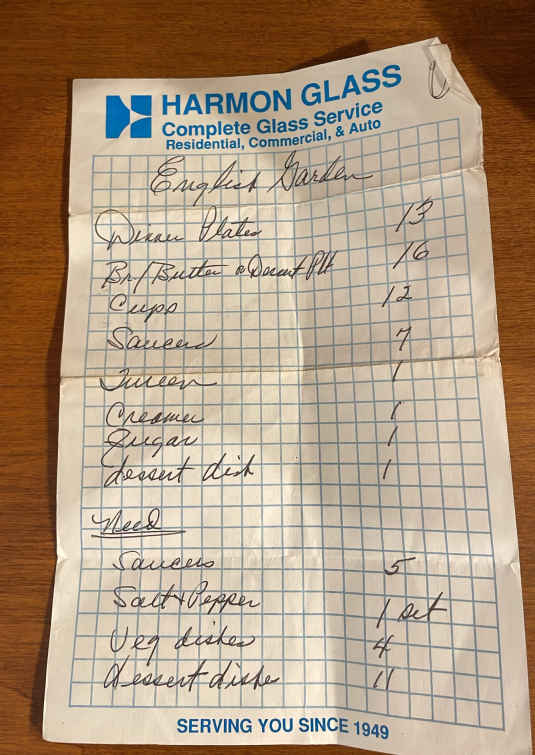 HARMON GLASS
Complete Glass Service
Residential, Commercial, & Auto
English Garden
Dinner Plates 13
Br/Butter or Desert Plt 16
Cups 12
Saucers 7
Tureen 1
Creamer 1
Sugar 1
dessert dish 1
Need
Saucers 5
Salt + Pepper 1 set
Veg dishes 4
dessert dishes 11
SERVING YOU SINCE 1949